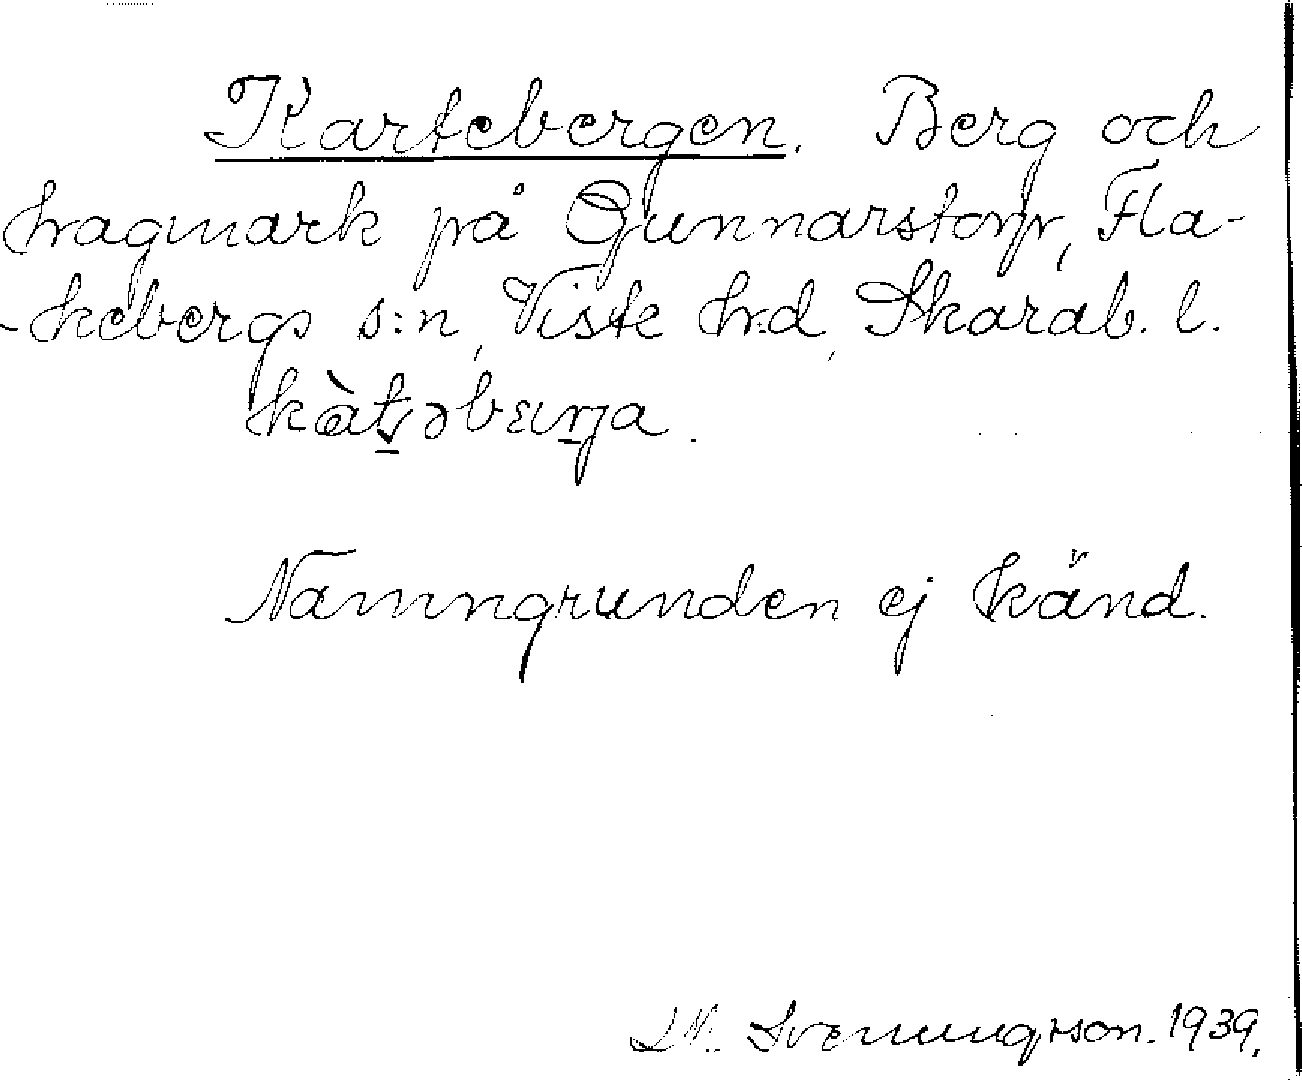 Kartebergen. Berg och
hagmark på Gunnarstorp, Fla-
-kebergs s:n, Viste h:d, Skarab. l.

Namngrunden ej känd.
Svenungsson. 1939.